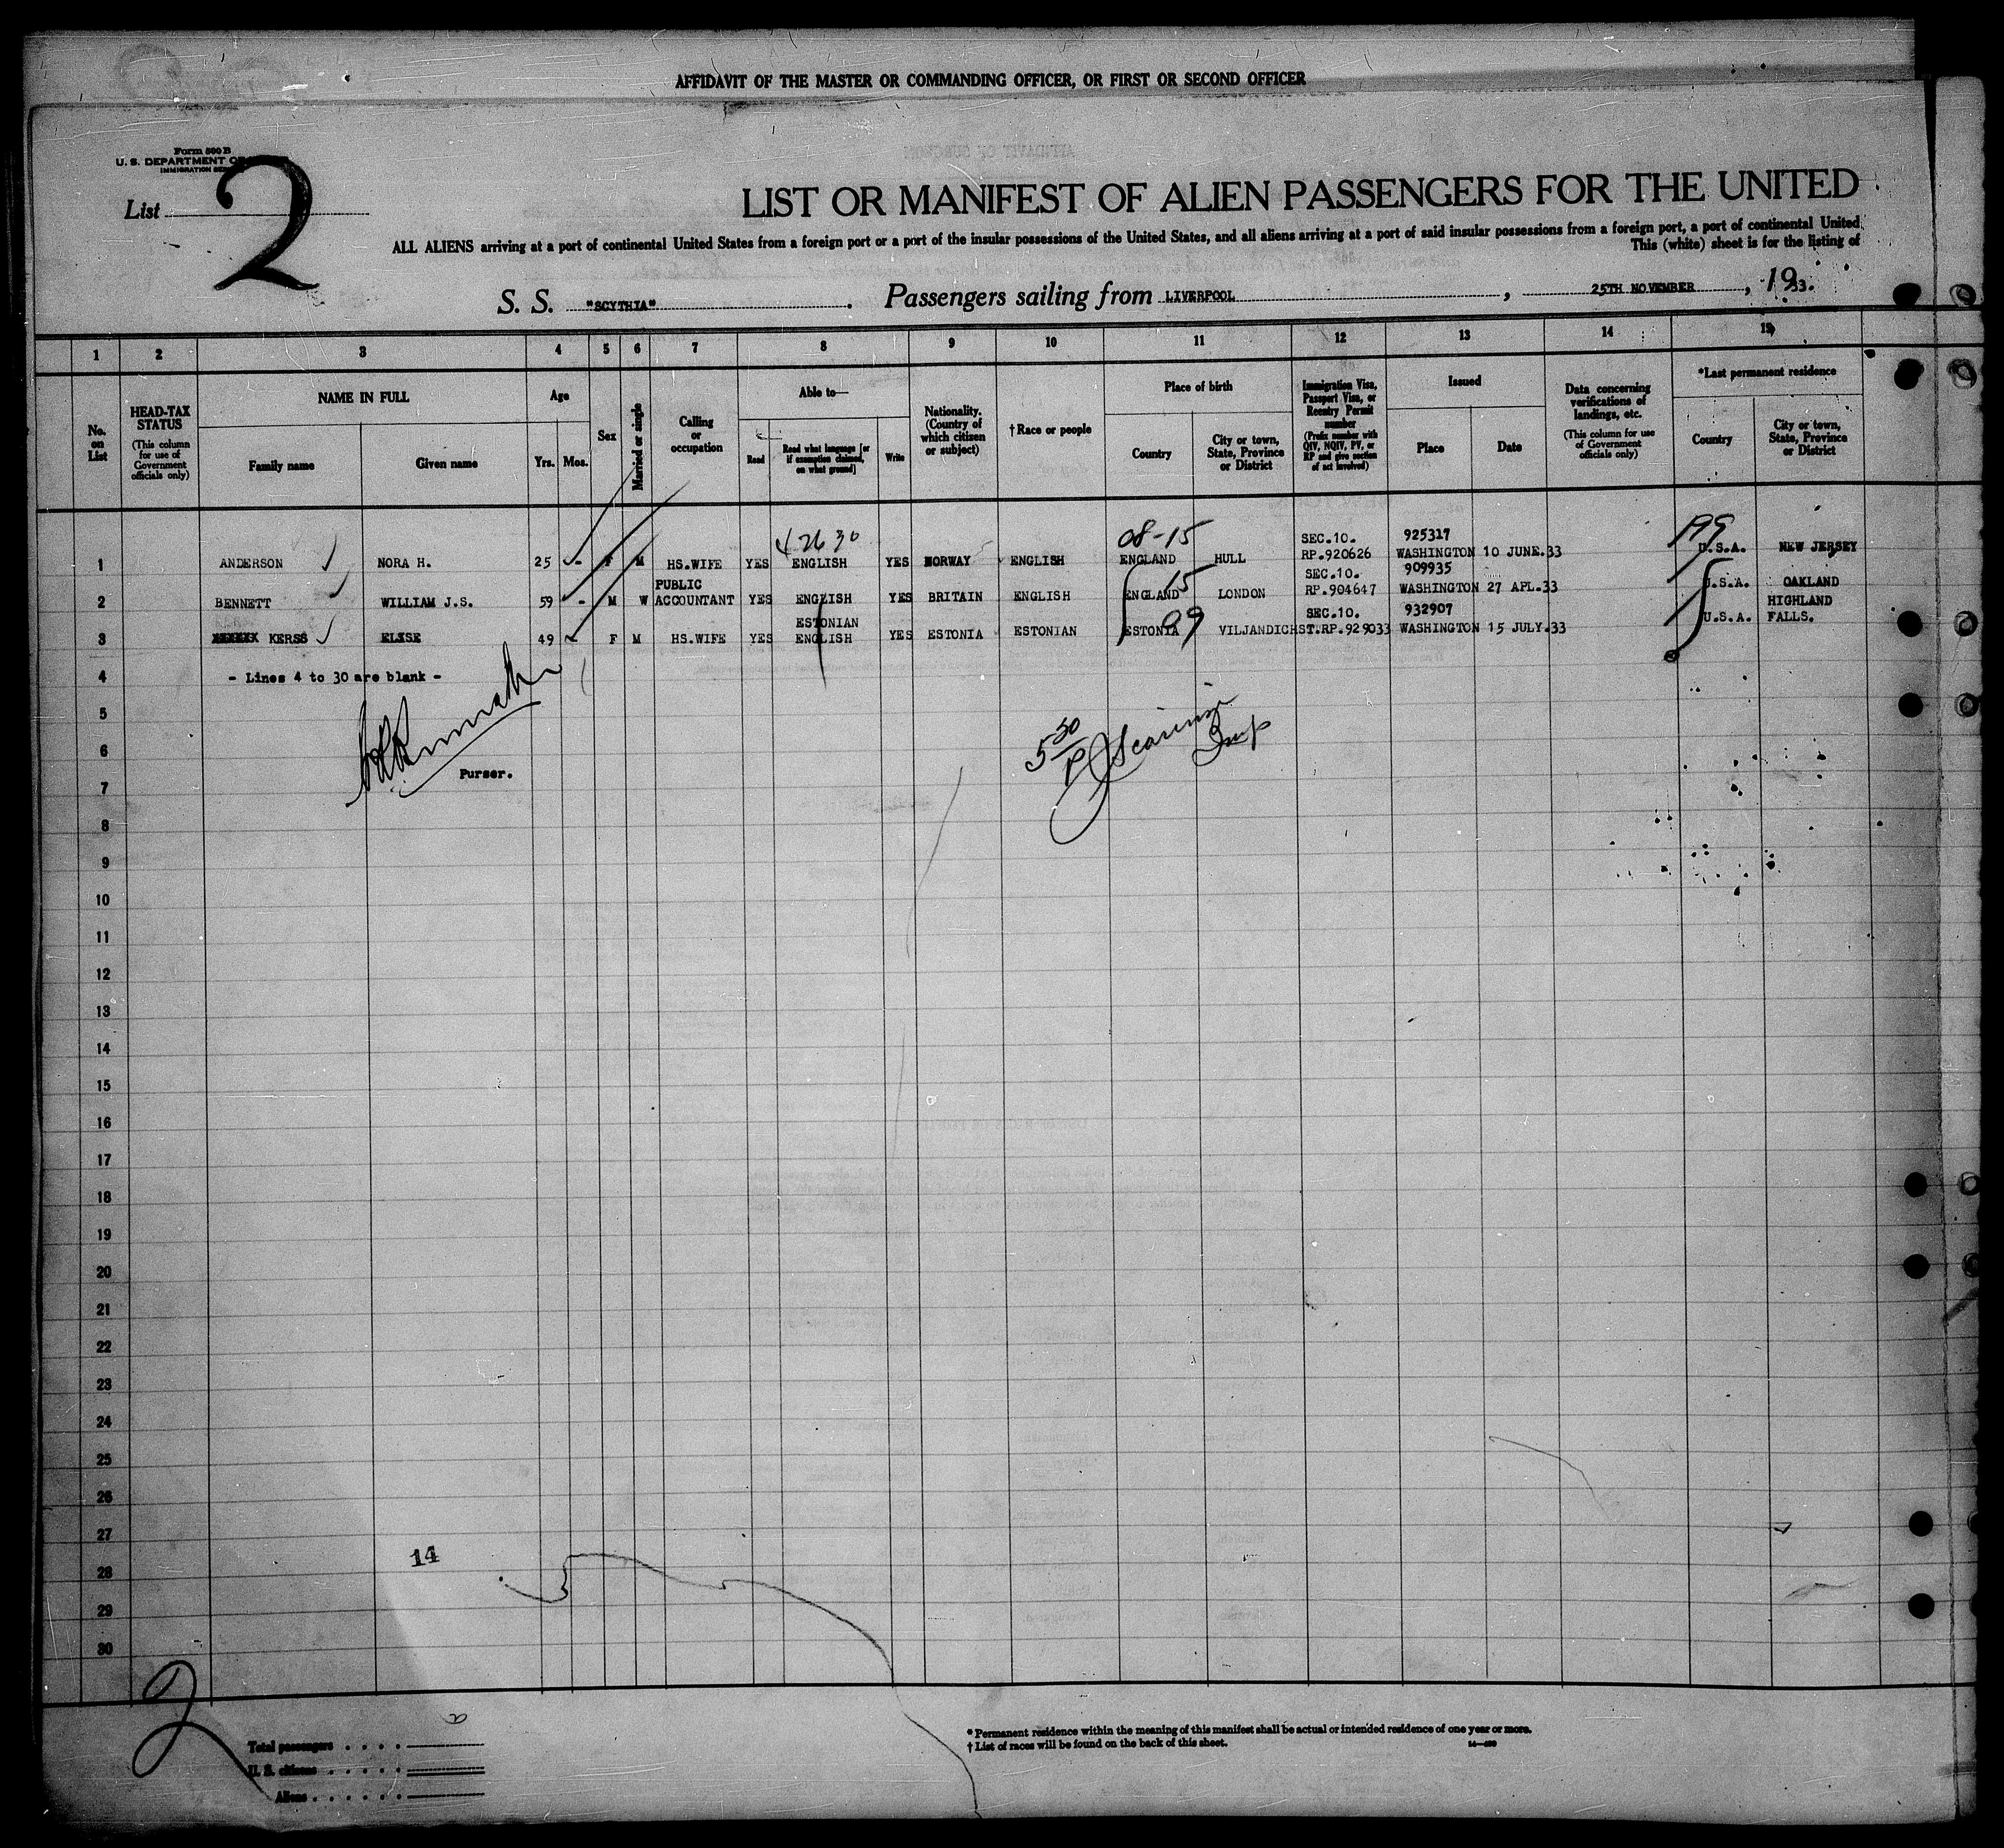 AFFIDAVIT OF THE MASTER OR COMMANDING OFFICER, OR FIRST OR SECOND OFFICER
Form 500 B
U. S. DEPARTMENT
IMMIGRATION
List 2
LIST OR MANIFEST OF ALIEN PASSENGERS FOR THE UNITED
ALL ALIENS arriving at a port of continental United States from a foreign port or a port of the insular possessions of the United States, and all aliens arriving at a port of said insular possessions from a foreign port, a port of continental United
This (white) sheet is for the listing of
S. S. "SCYTHIA". Passengers sailing from LIVERPOOL, 25TH NOVEMBER, 1933.
1 2 3 4 5 6 7 8 9 10 11 12 13 14 15
No. on List
HEAD-TAX STATUS (This column for use of Government officials only)
NAME IN FULL
Family name Given name
Age
Yrs. Mos.
Sex
Married or single
Calling or occupation
Able to—
Read Read what language [or if exemption claimed, on what ground] Write
Nationality. (Country of which citizen or subject)
†Race or people
Place of birth
Country City or town, State, Province or District
Immigration Visa, Passport Visa, or Reentry Permit number (Prefix number with QIV, NQIV, PV, or RP and give section of act involved)
Issued
Place Date
Data concerning verifications of landings, etc. (This column for use of Government officials only)
*Last permanent residence
Country City or town, State, Province or District
42630 08-15 SEC.10. 925317 199
1 ANDERSON NORA H. 25 - F M HS.WIFE YES ENGLISH YES NORWAY ENGLISH ENGLAND HULL RP.920626 WASHINGTON 10 JUNE.33 U.S.A. NEW JERSEY
PUBLIC 15 SEC.10. 909935
2 BENNETT WILLIAM J.S. 59 - M W ACCOUNTANT YES ENGLISH YES BRITAIN ENGLISH ENGLAND LONDON RP.904647 WASHINGTON 27 APL.33 U.S.A. OAKLAND
ESTONIAN 09 SEC.10. 932907 HIGHLAND
3 KERSS ELISE 49 F M HS.WIFE YES ENGLISH YES ESTONIA ESTONIAN ESTONIA VILJANDICHST. RP.929033 WASHINGTON 15 JULY.33 U.S.A. FALLS.
4 - Lines 4 to 30 are blank -
5
6 5 30/P
Purser.
7
8
9
10
11
12
13
14
15
16
17
18
19
20
21
22
23
24
25
26
27
14
28
29
30
2
Total passengers
U. S. citizens
Aliens
* Permanent residence within the meaning of this manifest shall be actual or intended residence of one year or more.
† List of races will be found on the back of this sheet.